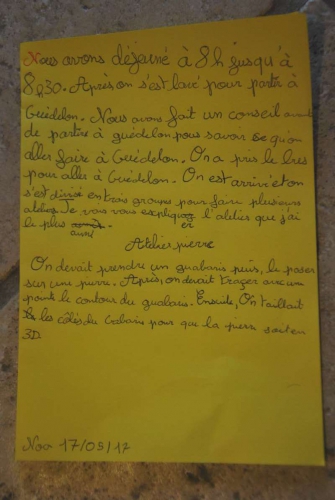 Nous avons déjeuné à 8h jusqu'à
8h30. Après on s'est lavé pour partir à
Guédelon. Nous avons fait un conseil avant
de partre à guédelon pous savoir ce qu'on
aller faire à Guédelon. On a pris le bus
pour aller à Guédelon. On est arrivé et on
s'est divisé en trois groupes pour faire plusieurs
atelies. Je vais vous expliquer l'atelier que j'ai
le plus aimé.
Atelier pierre
On devait prendre un guabaris puis, le poser
sur une pierre. Après, on devait tracer avec une
pointe le contour du guabaris. Ensuite, On taillait
les côtés du Gabaris pour que la pierre soit en
3D.
Noa 17/05/17